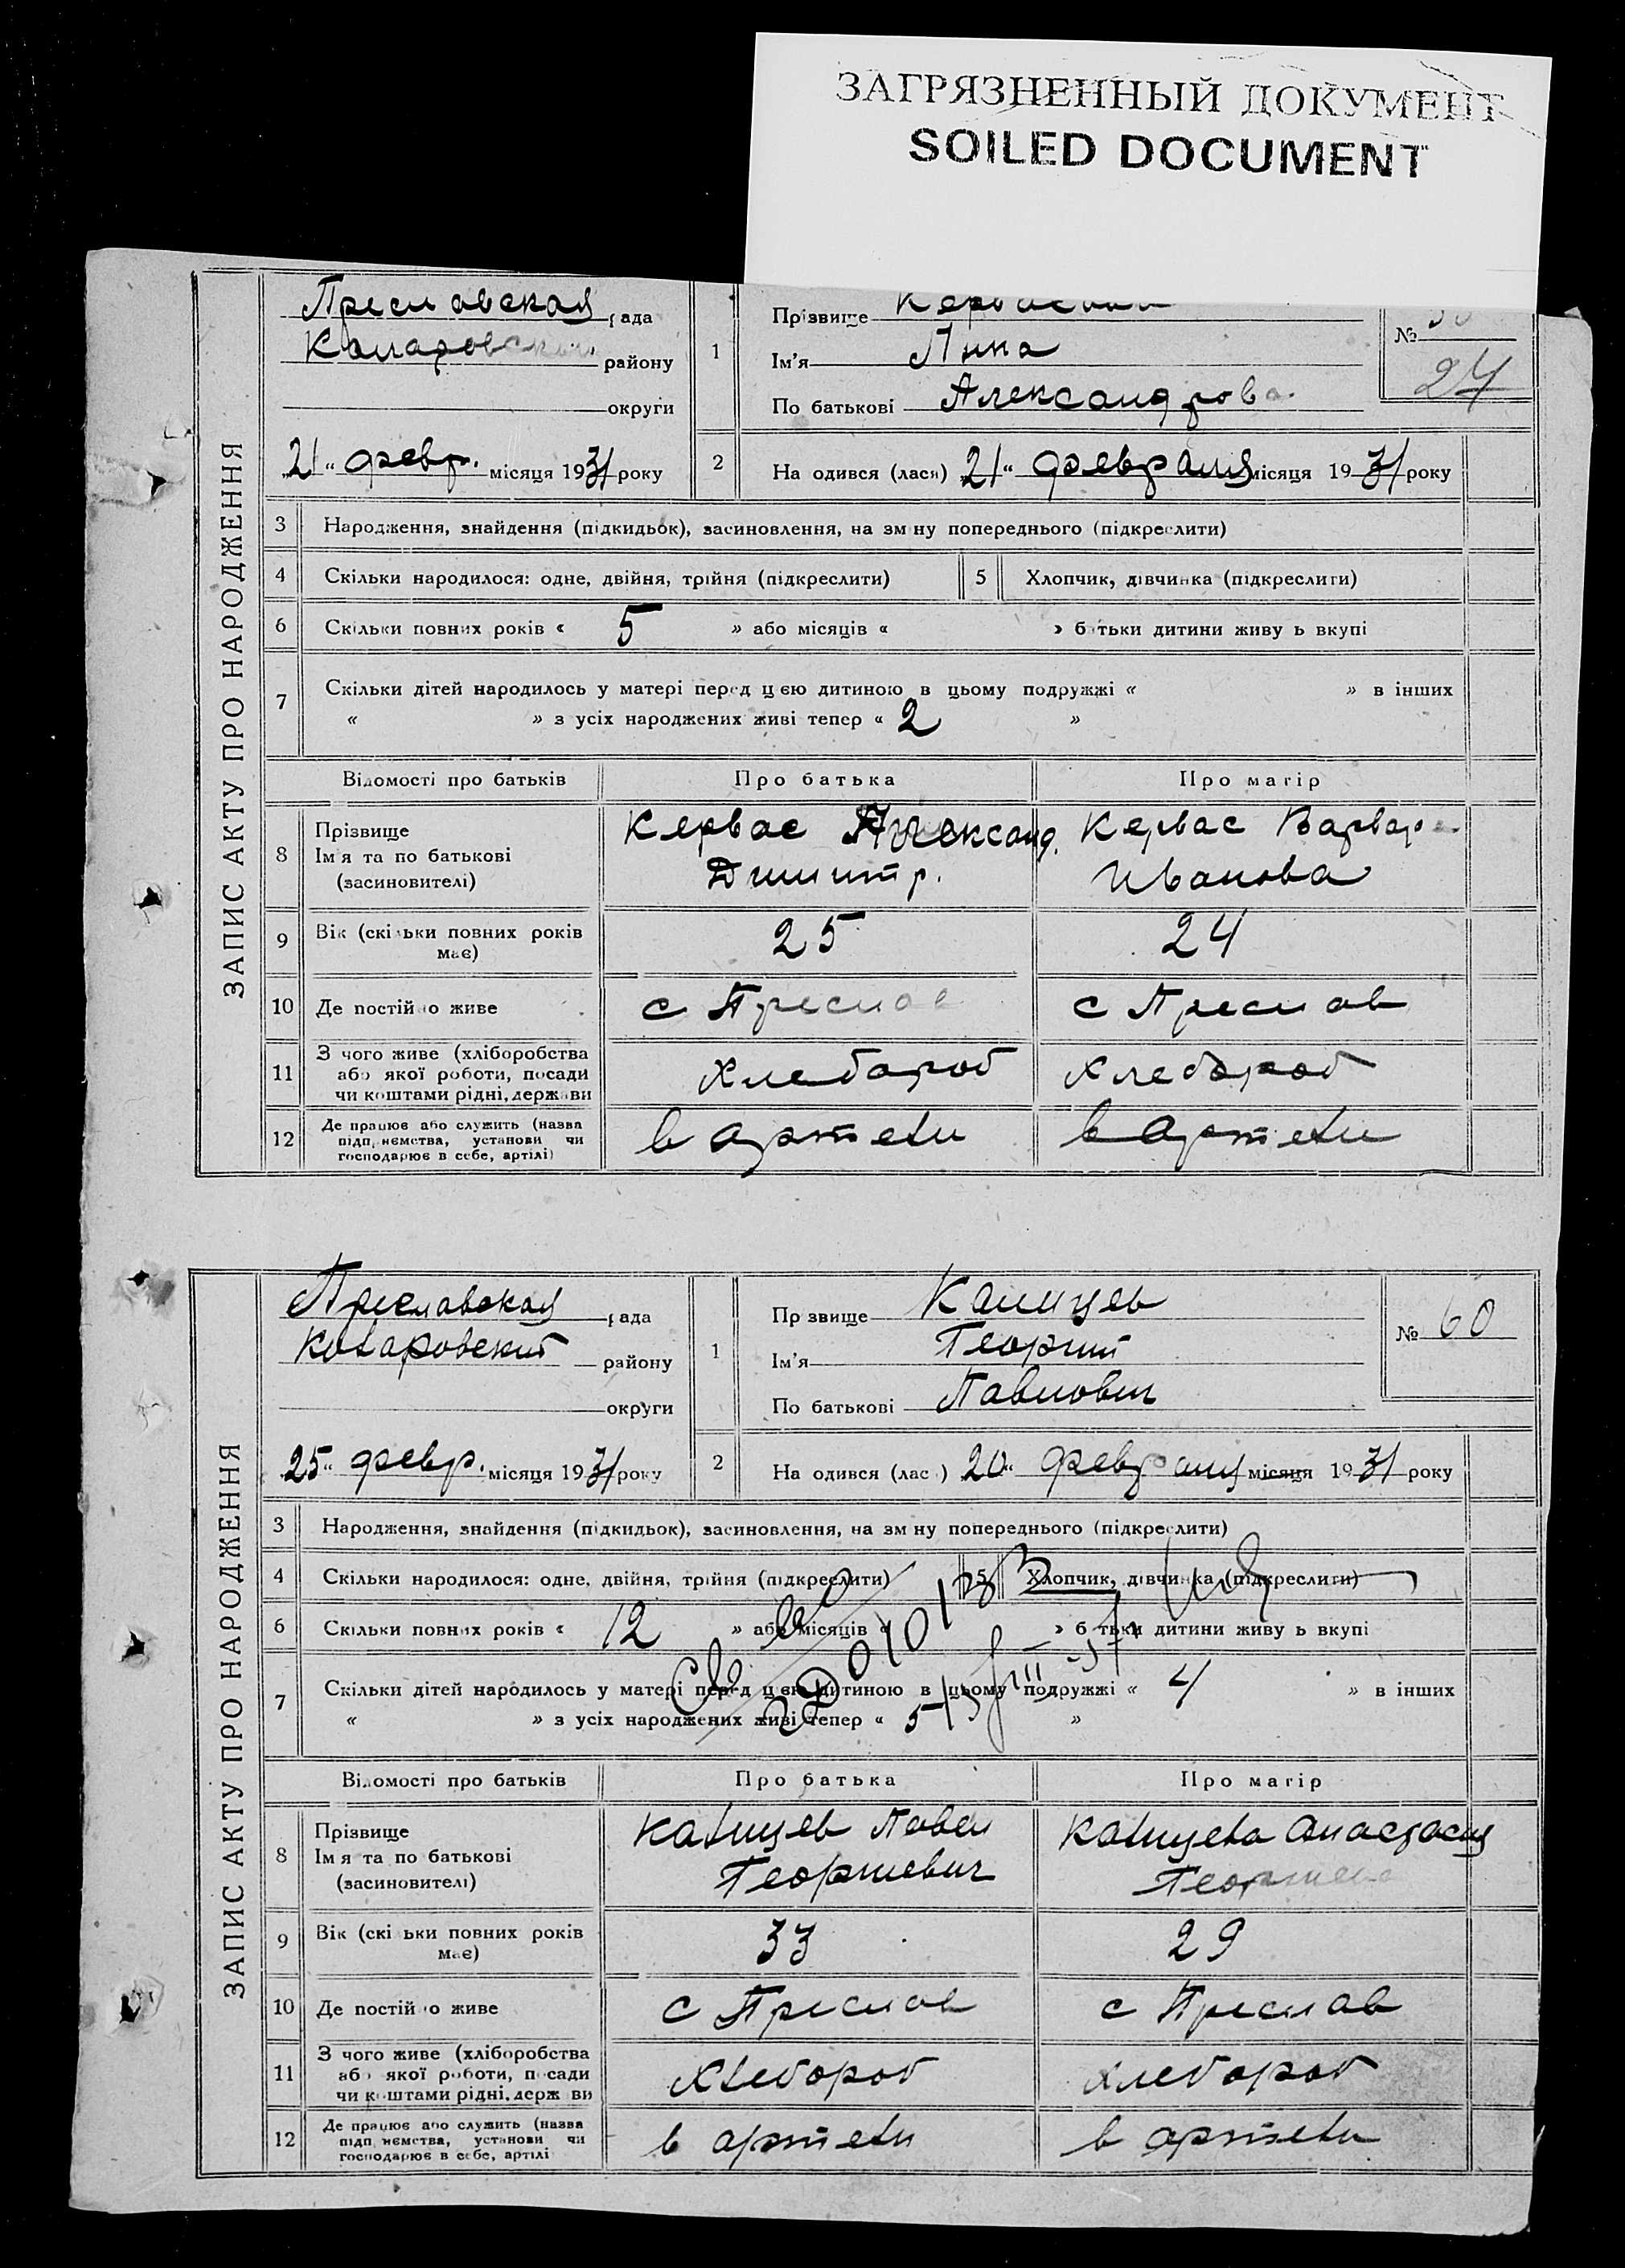 ЗАГРЯЗНЕННЫЙ ДОКУМЕНТ
SOILED DOCUMENT
ЗАПИС АКТУ ПРО НАРОДЖЕННЯ
Преславская рада
района
округи
21 " февр. місяця 1931 року
1
Прізвище
Ім'я
По батькові Александрова
№
24
2
На одився (лася) 21 " февраля місяця 1931 року
3 Народження, знайдення (підкидьок), засиновлення, на зм ну попереднього (підкреслити)
4 Скільки народилося: одне, двійня, трійня (підкреслити) 5 Хлопчик, дівчинка (підкреслити)
6 Скільки повних років « 5 » або місяців « » б тьки дитини живу ь вкупі
7 Скільки дітей народилось у матері перед цією дитиною в цьому подружжі « » в інших
« » з усіх народжених живі тепер « 2 »
Відомості про батьків Про батька Про матір
8 Прізвище Ім'я та по батькові (засиновителі)
Кервас Александ. Дмитр.
Кервас Варвар Иванова
9 Вік (скільки повних років має) 25 24
10 Де постійно живе с Преслав с Преслав
11 З чого живе (хліборобства або якої роботи, посади чи коштами рідні, держави
Хлебороб хлебороб
12 Де працює або служить (назва підп, немства, установи чи господарює в себе, артілі)
в артели в артели
ЗАПИС АКТУ ПРО НАРОДЖЕННЯ
Преславская рада
Коларовский району
округи
25 " февр. місяця 1931 року
1
Пр звище Калицев
Ім'я Георгий
По батькові Павлович
№ 60
2
На одився (лас ) 20 " февраля місяця 1931 року
3 Народження, знайдення (підкидьок), засиновлення, на зм ну попереднього (підкреслити)
4 Скільки народилося: одне, двійня, трійня (підкреслити) 5 Хлопчик, дівчинка (підкреслити)
6 Скільки повних років « 12 » або місяців « » б тьки дитини живу ь вкупі
7 Скільки дітей народилось у матері перед цією дитиною в цьому подружжі « 4 » в інших
« » з усіх народжених живі тепер « 5 »
Відомості про батьків Про батька Про матір
8 Прізвище Ім'я та по батькові (засиновителі)
Калицев Павел Георгиевич
Калицева Анастасия
9 Вік (скі ьки повних років має) 33 29
10 Де постійно живе с Преслав с Преслав
11 З чого живе (хліборобства або якої роботи, посади чи коштами рідні, держ ви
Хлебороб хлебороб
12 Де працює або служить (назва підп, немства, установи чи господарює в себе, артілі
в артели в артели